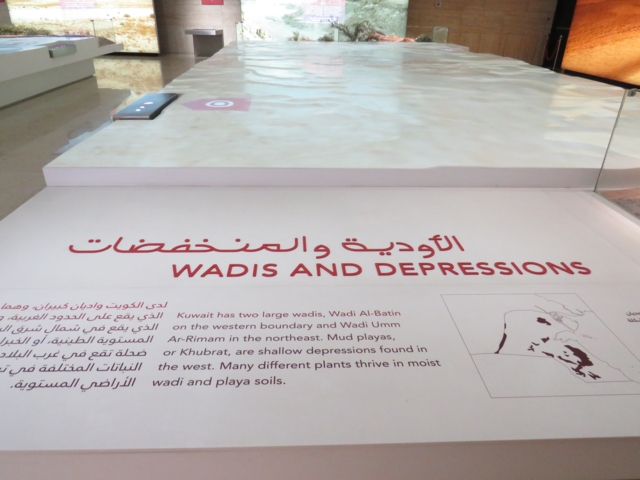 الأودية والمنخفضات
WADIS AND DEPRESSIONS
لدى الكويت واديان كبيران، وهما
الذي يقع على الحدود الغربية، و
الذي يقع في شمال شرق ال
المستوية الطينية، أو الخبرا
ضحلة تقع في غرب البلاد
النباتات المختلفة في
الأراضي المستوية.
Kuwait has two large wadis, Wadi Al-Batin
on the western boundary and Wadi Umm
Ar-Rimam in the northeast. Mud playas,
or Khubrat, are shallow depressions found in
the west. Many different plants thrive in moist
wadi and playa soils.